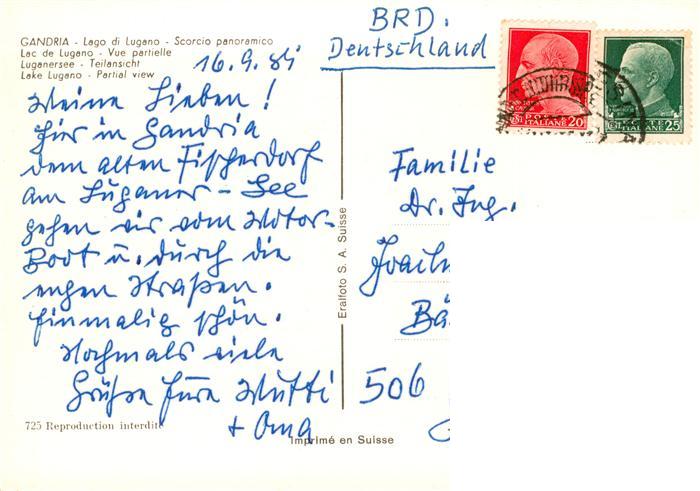 GANDRIA - Lago di Lugano - Scorcio panoramico
Lac de Lugano - Vue partielle
Luganersee - Teilansicht
Lake Lugano - Partial view
16.9.84
Meine Lieben!
Hier in Gandria
dem alten Fischerdorf
am Luganer-See
gehen wir vom Motor-
Boot u. durch die
engen Straßen.
Einmalig schön.
Nochmals viele
Grüße Eure Mutti
+ Oma
725 Reproduction interdite
Imprimé en Suisse
Eralfoto S. A. Suisse
BRD.
Deutschland
POSTE
ITALIANE 20
POSTE
ITALIANE 25
Familie
Dr. Ing.
506